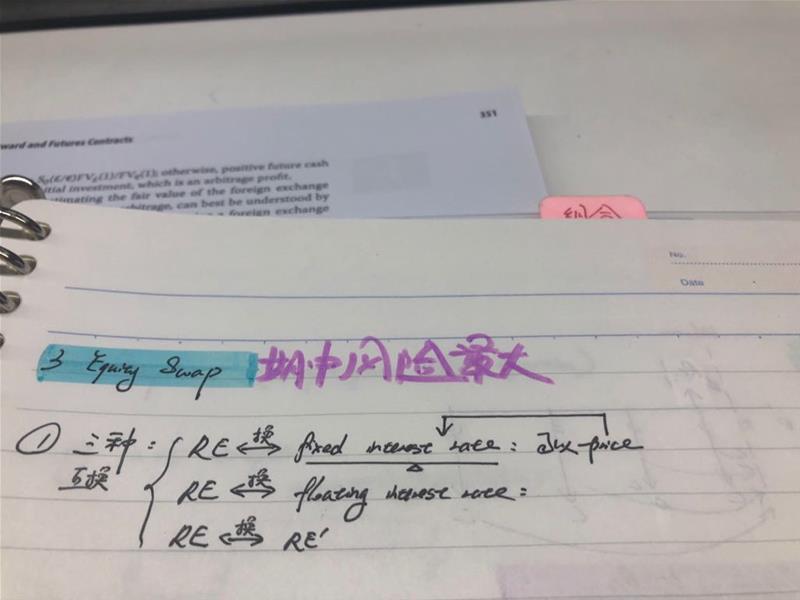 351
ward and Futures Contracts
S₀(£/€)FV£(1)/FV€(1); otherwise, positive future cash
itial investment, which is an arbitrage profit.
timating the fair value of the foreign exchange
bitrage, can best be understood by
a foreign exchange
No.
Date
3 Equity Swap 期中风险最大
① 三种互换: RE ⟷换 fixed interest rate: 求price
RE ⟷换 floating interest rate:
RE ⟷换 RE'